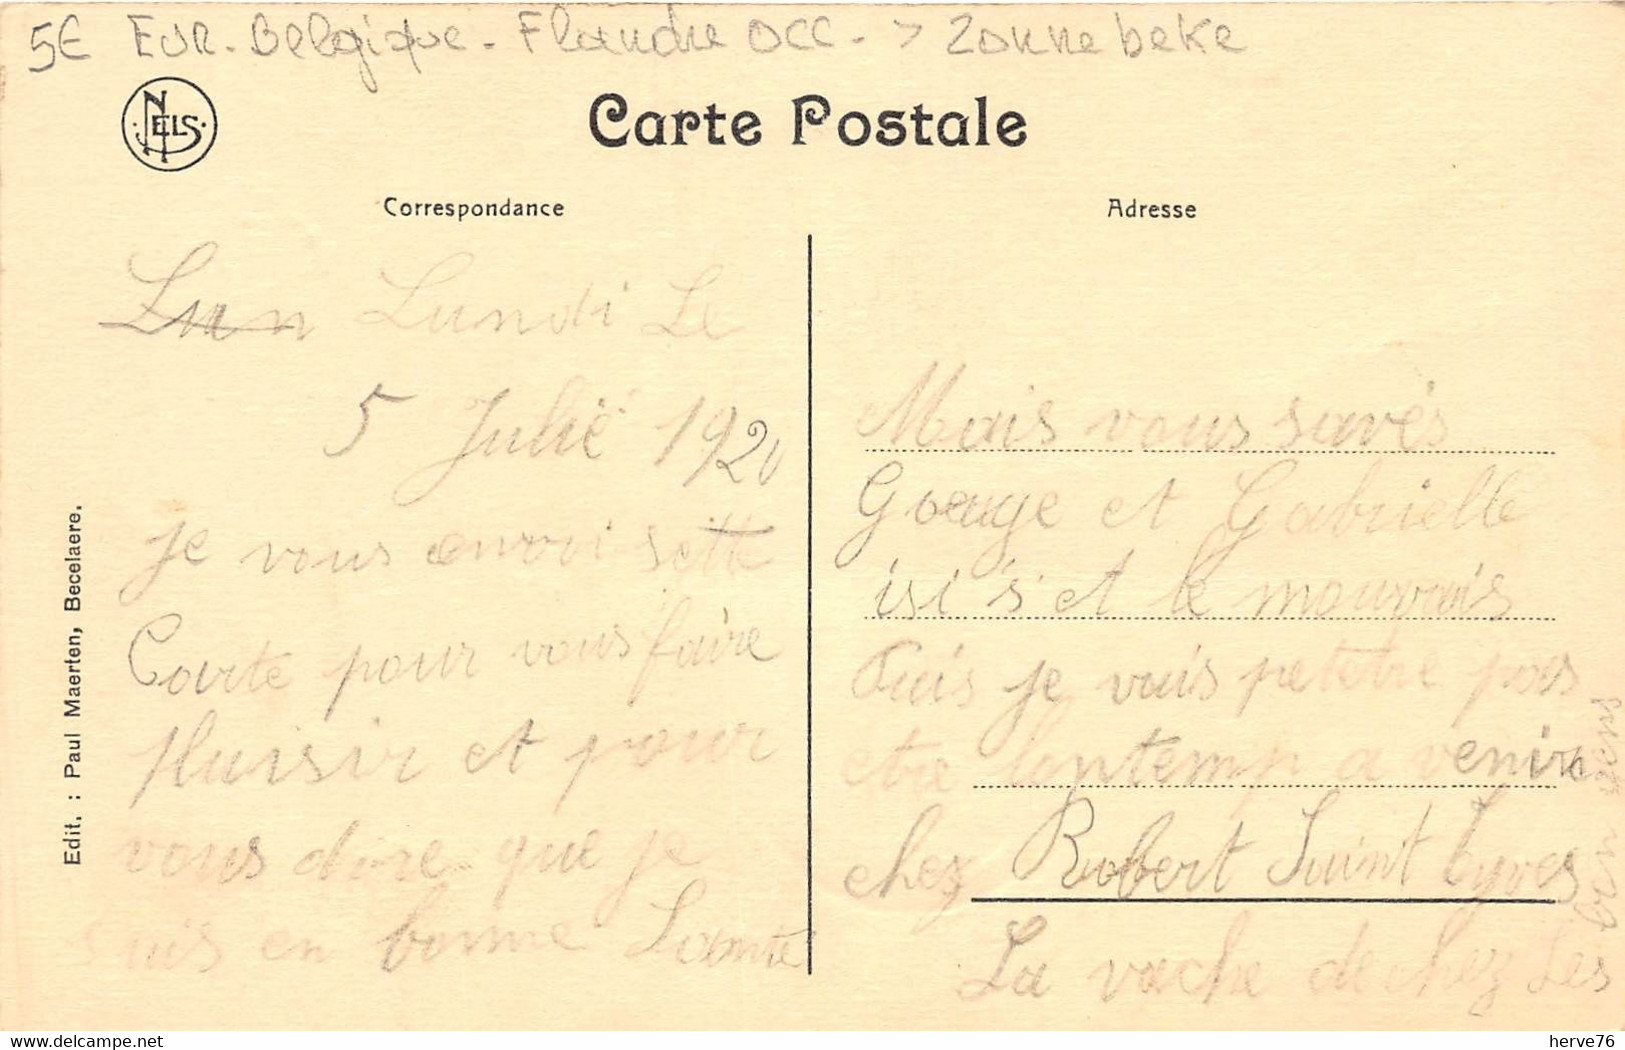 5€ EUR. Belgique - Flandre occ - > Zonnebeke
NELS
Carte Postale
Correspondance
Adresse
Lun Lundi Le
5 Julië 1920
je vous envoi sette
Carte pour vous faire
plaisir et pour
vous dire que je
suis en bonne Sante
Mais vous savés
George et Gabrielle
isi s'et le mouvais
Puis je vais petetre pas
etre lontemp a venir
chez Robert Saint Yves
La vache de chez Les
Edit. : Paul Maerten, Becelaere.
herve76